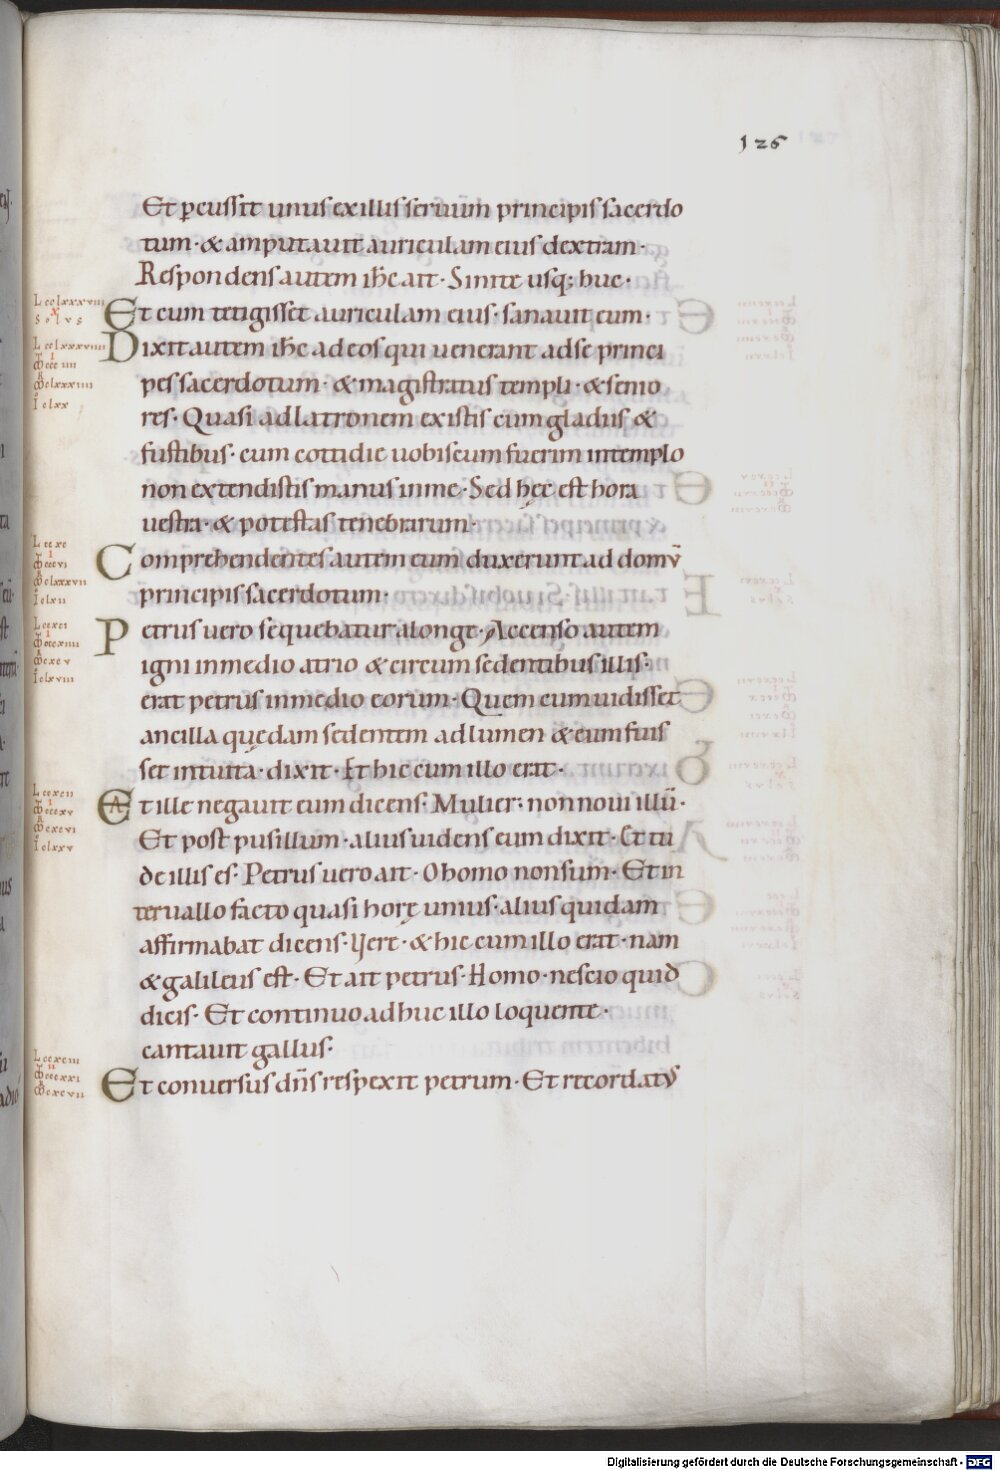 126
Et ꝑcussit unus ex illis seruum principis sacerdo
tum · & amputauit auriculam eius dextram ·
Respondens autem ihc ait · Sinite usq; huc ·
Et cum tetigisset auriculam eius · sanauit eum ·
Dixit autem ihc ad eos qui uenerant adse princi
pes sacerdotum · & magistratus templi · & senio
res · Quasi ad latronem existis cum gladiis &
fustibus · cum cottidie uobiscum fuerim in templo
non extendistis manus in me · Sed hęc est hora
uestra · & potestas tenebrarum ·
Comprehendentes autem eum duxerunt ad domū
principis sacerdotum ·
Petrus uero sequebatur alonge · Accenso autem
igni in medio atrio & circum sedentibus illis ·
erat petrus in medio eorum · Quem cum uidisset
ancilla quędam sedentem ad lumen & eum fuis
set intuita · dixit · Et hic cum illo erat ·
Et ille negauit eum dicens · Mulier · non noui illū ·
Et post pusillum · alius uidens eum dixit · Et tu
de illis es · Petrus uero ait · O homo non sum · Et in
teruallo facto quasi horę unius · alius quidam
affirmabat dicens · Vere · & hic cum illo erat · nam
& galileus est · Et ait petrus · Homo · nescio quid
dicis · Et continuo adhuc illo loquente ·
cantauit gallus ·
Et conuersus dn̄s respexit petrum · Et recordatus
Digitalisierung gefördert durch die Deutsche Forschungsgemeinschaft - DFG